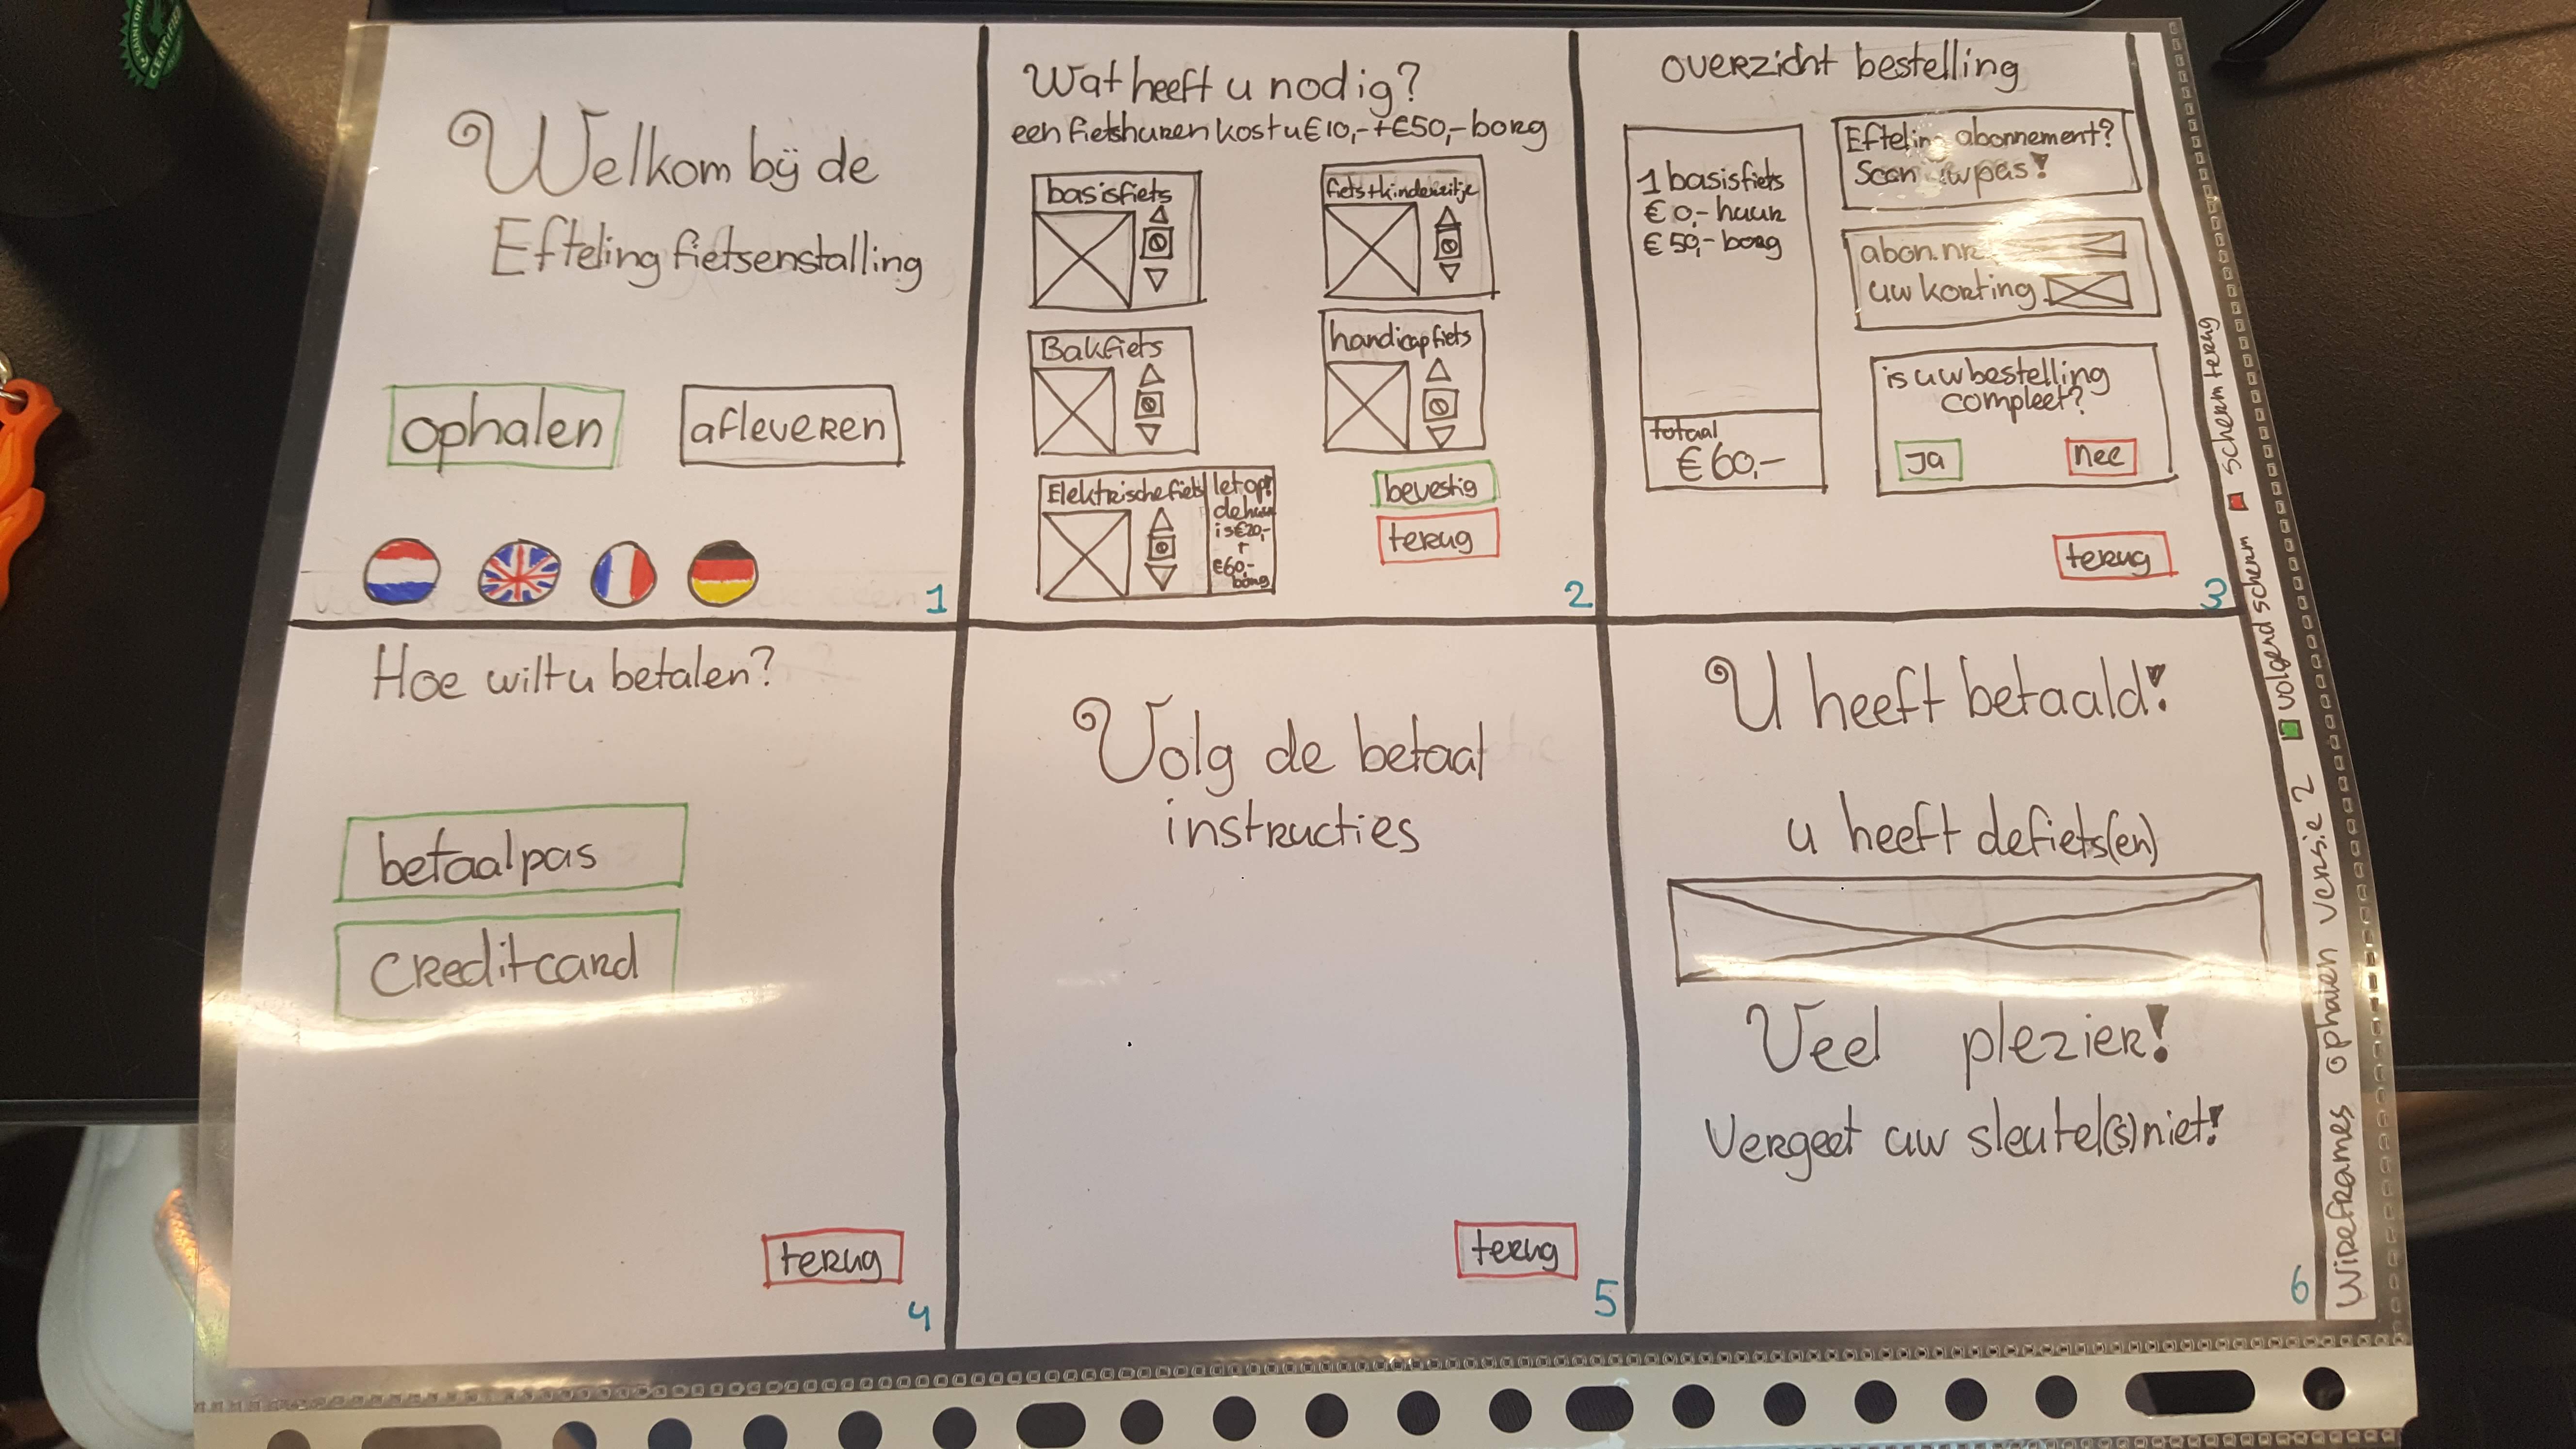 RAINFOR
CERTIFIED
Welkom bij de
Efteling fietsenstalling
ophalen
afleveren
1
Wat heeft u nodig?
een fiets huren kost u €10,- + €50,- borg
basisfiets
fiets+kinderzitje
Bakfiets
handicapfiets
Elektrische fiets
let op!
de huur
is €20,-
+
€60,-
borg
bevestig
terug
2
overzicht bestelling
1 basisfiets
€ 0,- huur
€ 50,- borg
totaal
€60,-
Efteling abonnement?
Scan uw pas!
abon. nr.
uw korting
is uw bestelling
compleet?
Ja
nee
terug
3
Hoe wilt u betalen?
betaalpas
creditcard
terug
4
Volg de betaal
instructies
terug
5
U heeft betaald!
u heeft de fiets(en)
Veel plezier!
Vergeet uw sleutel(s) niet!
6
Wireframes ophalen versie 2
volgend scherm
scherm terug